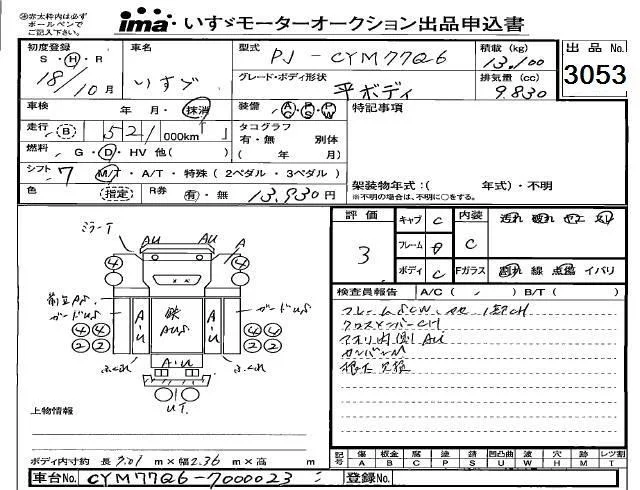 ※赤太枠内は必ず
ボールペンで
ご記入下さい。
ima いすゞモーターオークション出品申込書
初度登録 S・H・R 18/10月
車名 いすゞ
型式 PJ-CYM77Q6
積載(kg) 13,100
出品No. 3053
グレード・ボディ形状 平ボディ
排気量(cc) 9.830
車検 年 月・抹消
装備 A/C・P/S・P/W
特記事項
走行 B 521 000km
タコグラフ 有・無 別体
( 年 月)
燃料 G・D・HV 他( )
シフト 7 M/T・A/T・特殊(2ペダル・3ペダル)
架装物年式:( 年式)・不明
※不明の場合は、不明に○をする。
色 指定 R券 有・無 13,930円
評価 3
キャブ C
内装 C
汚れ 破れ ヤニ スレ
フレーム A
ボディ C
Fガラス 割れ 線 点傷 イバリ
検査員報告 A/C( ) B/T( )
アオリ内側AU
ミラーT
AU
A
④ ④
ガードUS
ガードUS
A・U
鉄
AUS
A・U
④④ ④④
②② ②②
A・U
UT
上物情報
ボディ内寸約 長 9.01 m×幅 2.36 m×高 m
記号 傷A 板金B 腐C 塗P 錆S 凹凸曲U 波W 穴H 跡M レツ割T
車台No. CYM77Q6-7000023
登録No.